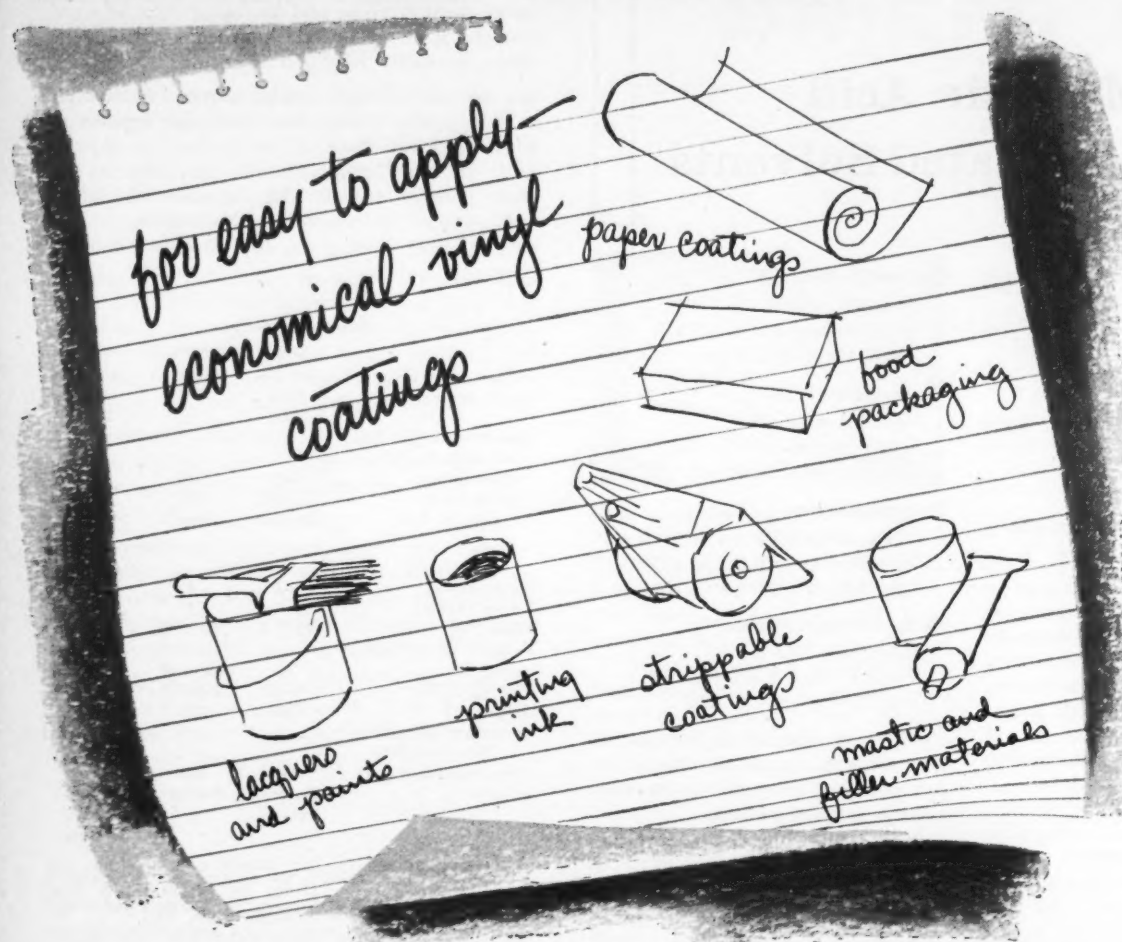 for easy to apply—
economical vinyl
coatings
paper coatings
food
packaging
lacquers
and paints
printing
ink
strippable
coatings
mastic and
filler materials